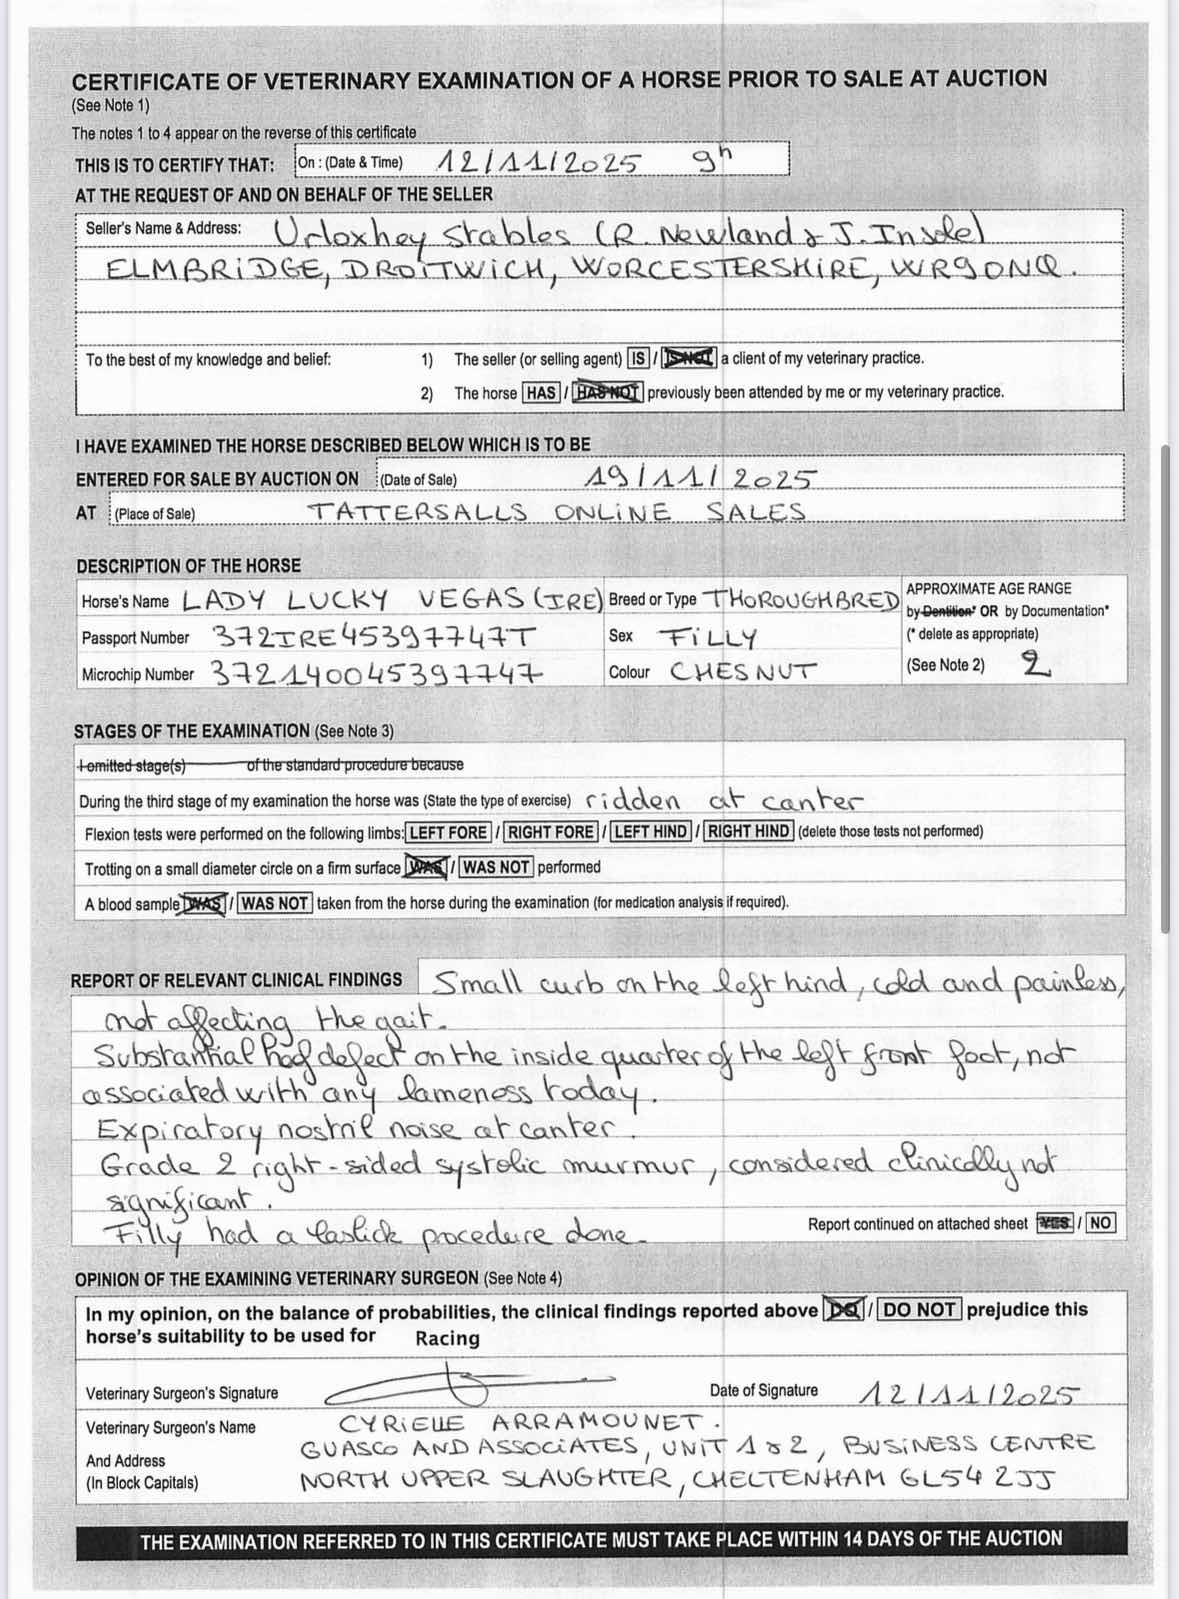 CERTIFICATE OF VETERINARY EXAMINATION OF A HORSE PRIOR TO SALE AT AUCTION
(See Note 1)
The notes 1 to 4 appear on the reverse of this certificate
THIS IS TO CERTIFY THAT: On : (Date & Time) 12/11/2025 9h
AT THE REQUEST OF AND ON BEHALF OF THE SELLER
Seller's Name & Address: Urloxhey Stables (R. Newland & J. Insole)
ELMBRIDGE, DROITWICH, WORCESTERSHIRE, WR9 0NQ.
To the best of my knowledge and belief: 1) The seller (or selling agent) IS / IS NOT a client of my veterinary practice.
2) The horse HAS / HAS NOT previously been attended by me or my veterinary practice.
I HAVE EXAMINED THE HORSE DESCRIBED BELOW WHICH IS TO BE
ENTERED FOR SALE BY AUCTION ON (Date of Sale) 19/11/2025
AT (Place of Sale) TATTERSALLS ONLINE SALES
DESCRIPTION OF THE HORSE
Horse's Name LADY LUCKY VEGAS (IRE) Breed or Type THOROUGHBRED APPROXIMATE AGE RANGE
by Dentition* OR by Documentation*
Passport Number 372IRE45397747T Sex FILLY (* delete as appropriate)
Microchip Number 372140045397747 Colour CHESNUT (See Note 2) 2
STAGES OF THE EXAMINATION (See Note 3)
I omitted stage(s) of the standard procedure because
During the third stage of my examination the horse was (State the type of exercise) ridden at canter
Flexion tests were performed on the following limbs: LEFT FORE / RIGHT FORE / LEFT HIND / RIGHT HIND (delete those tests not performed)
Trotting on a small diameter circle on a firm surface WAS / WAS NOT performed
A blood sample WAS / WAS NOT taken from the horse during the examination (for medication analysis if required).
REPORT OF RELEVANT CLINICAL FINDINGS Small curb on the left hind, cold and painless,
not affecting the gait.
Substantial hoof defect on the inside quarter of the left front foot, not
associated with any lameness today.
Expiratory nostril noise at canter.
Grade 2 right-sided systolic murmur, considered clinically not
significant.
Filly had a caslick procedure done.
Report continued on attached sheet YES / NO
OPINION OF THE EXAMINING VETERINARY SURGEON (See Note 4)
In my opinion, on the balance of probabilities, the clinical findings reported above DO / DO NOT prejudice this
horse's suitability to be used for Racing
Veterinary Surgeon's Signature Date of Signature 12/11/2025
Veterinary Surgeon's Name CYRIELLE ARRAMOUNET.
And Address GUASCO AND ASSOCIATES, UNIT 1 & 2, BUSINESS CENTRE
(In Block Capitals) NORTH UPPER SLAUGHTER, CHELTENHAM GL54 2JJ
THE EXAMINATION REFERRED TO IN THIS CERTIFICATE MUST TAKE PLACE WITHIN 14 DAYS OF THE AUCTION